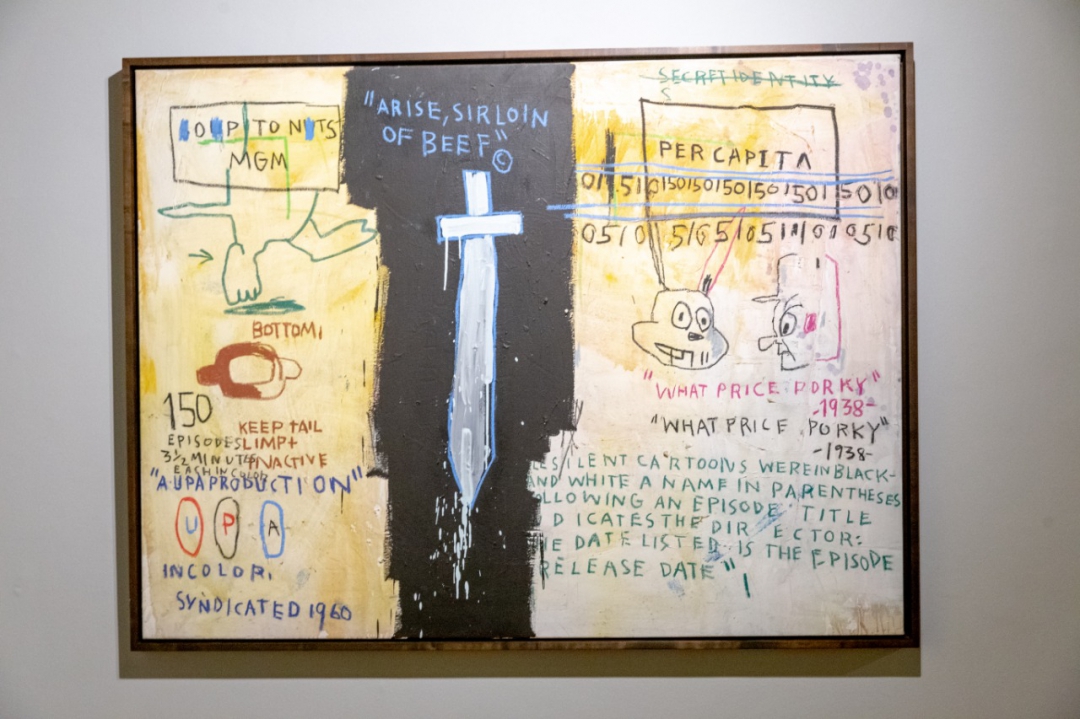 SOUP TO NUTS
MGM
"ARISE, SIRLOIN
OF BEEF"
©
SECRET IDENTITY
S
PER CAPITA
BOTTOM,
150
EPISODES
3½ MINUTES
EACH IN COLOR
KEEP TAIL
LIMP+
INACTIVE
"A UPA PRODUCTION"
U P A
IN COLOR.
SYNDICATED 1960
"WHAT PRICE PORKY"
-1938-
"WHAT PRICE PORKY"
-1938-
LES ILENT CARTOONS WERE IN BLACK-
AND WHITE A NAME IN PARENTHESES
OLLOWING AN EPISODE TITLE
DICATES THE DIR ECTOR:
HE DATE LISTED IS THE EPISODE
RELEASE DATE"